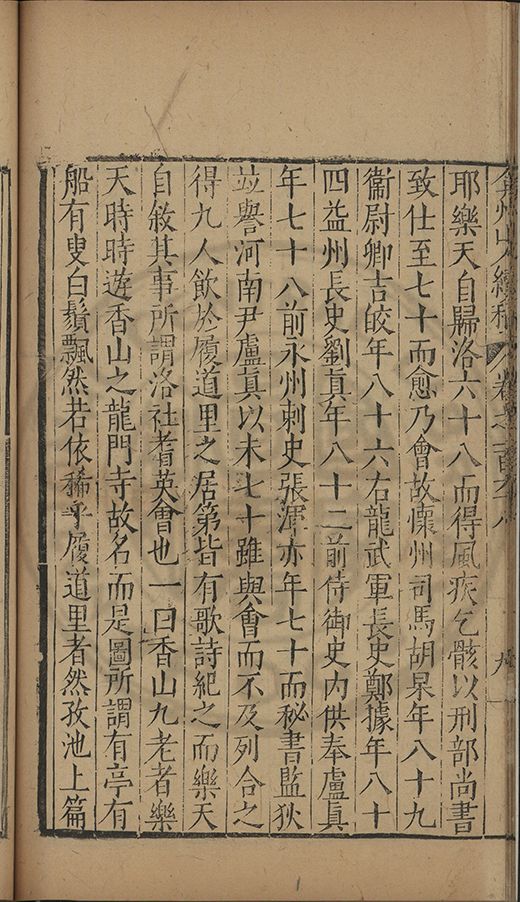 弇州山人續稿 卷之一百六十八 九
耶樂天自歸洛六十八而得風疾乞骸以刑部尚書
致仕至七十而愈乃會故懷州司馬胡杲年八十九
衞尉卿吉皎年八十六右龍武軍長史鄭據年八十
四益州長史劉真年八十二前侍御史內供奉盧真
年七十八前永州刺史張渾亦年七十而秘書監狄
竝譽河南尹盧真以未七十雖與會而不及列合之
得九人飲於履道里之居第皆有歌詩紀之而樂天
自敘其事所謂洛社耆英會也一曰香山九老者樂
天時時遊香山之龍門寺故名而是圖所謂有亭有
船有叟白鬚飄然若依稀乎履道里者然孜池上篇